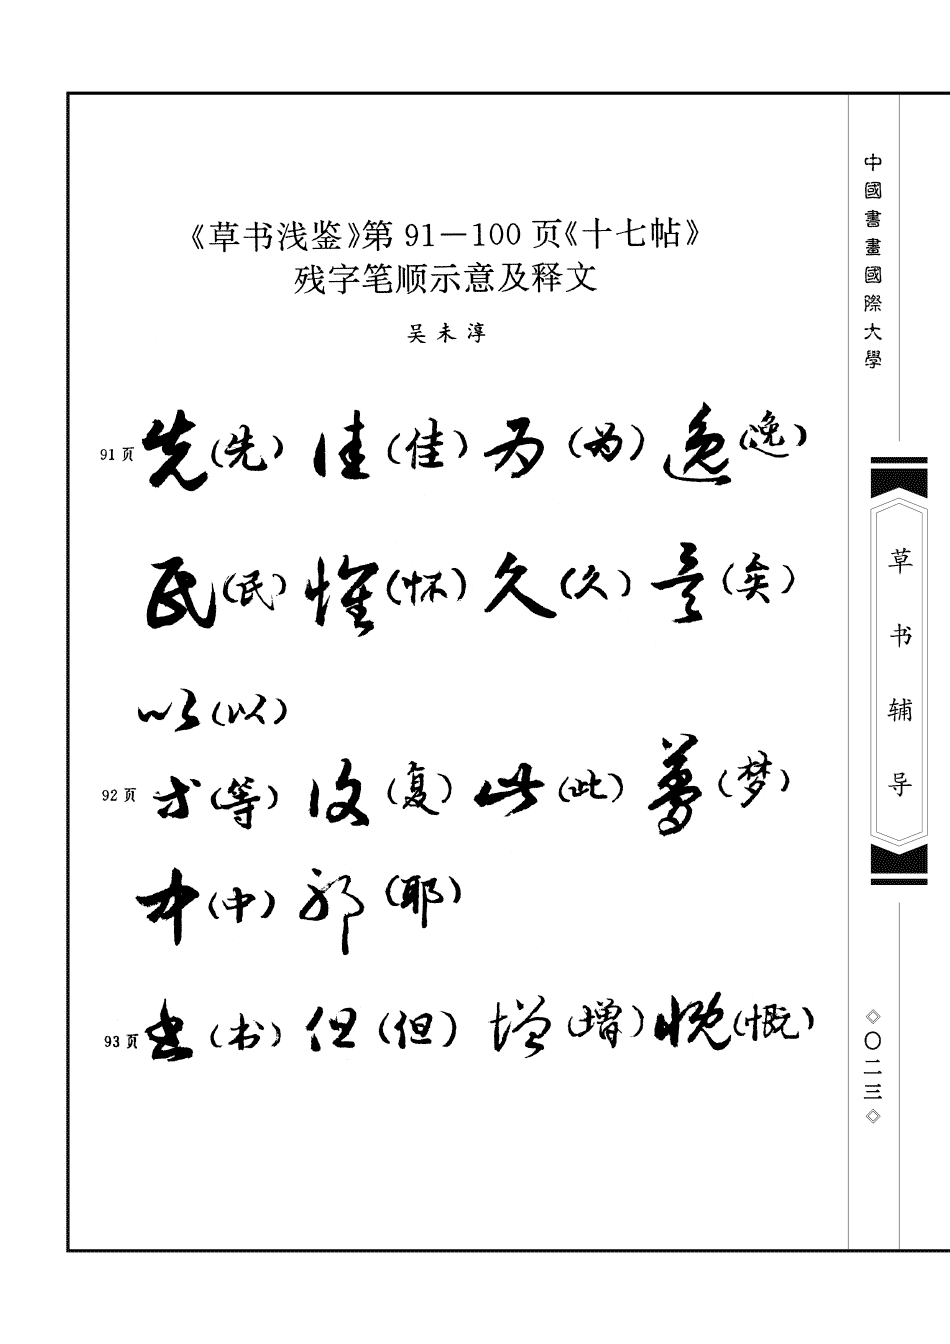 《草书浅鉴》第91—100页《十七帖》
残字笔顺示意及释文
吴未淳
91页 先(先) 佳(佳) 为(为) 逸(逸)
民(民) 怀(怀) 久(久) 矣(矣)
以(以)
92页 等(等) 复(复) 此(此) 梦(梦)
中(中) 耶(耶)
93页 书(书) 但(但) 增(增) 慨(慨)
中國書畫國際大學
草书辅导
◇〇二三◇